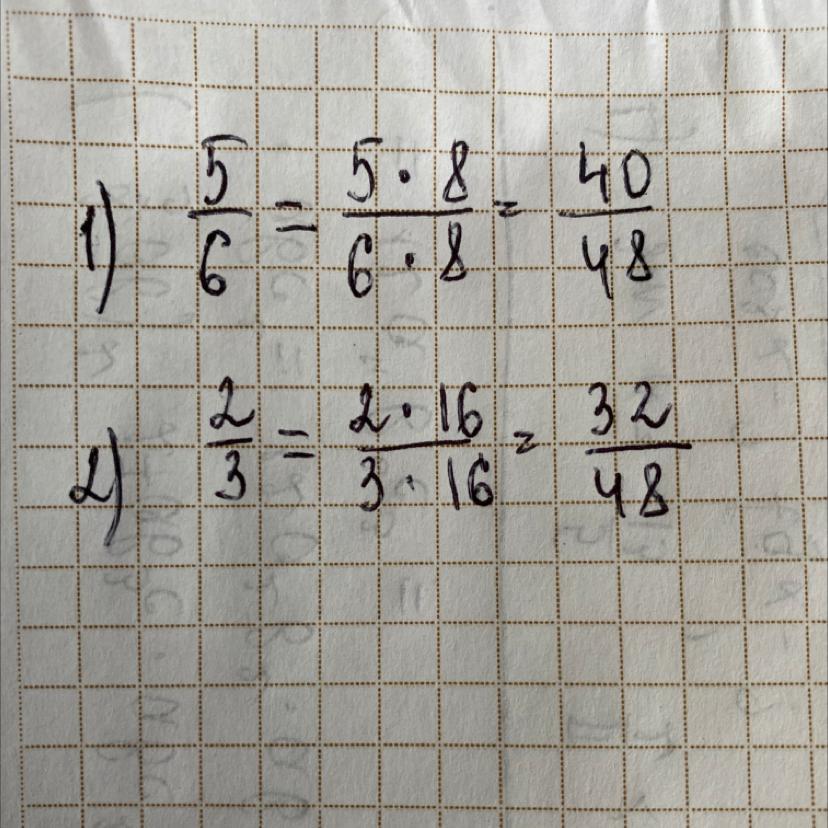 1) 5/6 = 5·8/6·8 = 40/48
2) 2/3 = 2·16/3·16 = 32/48